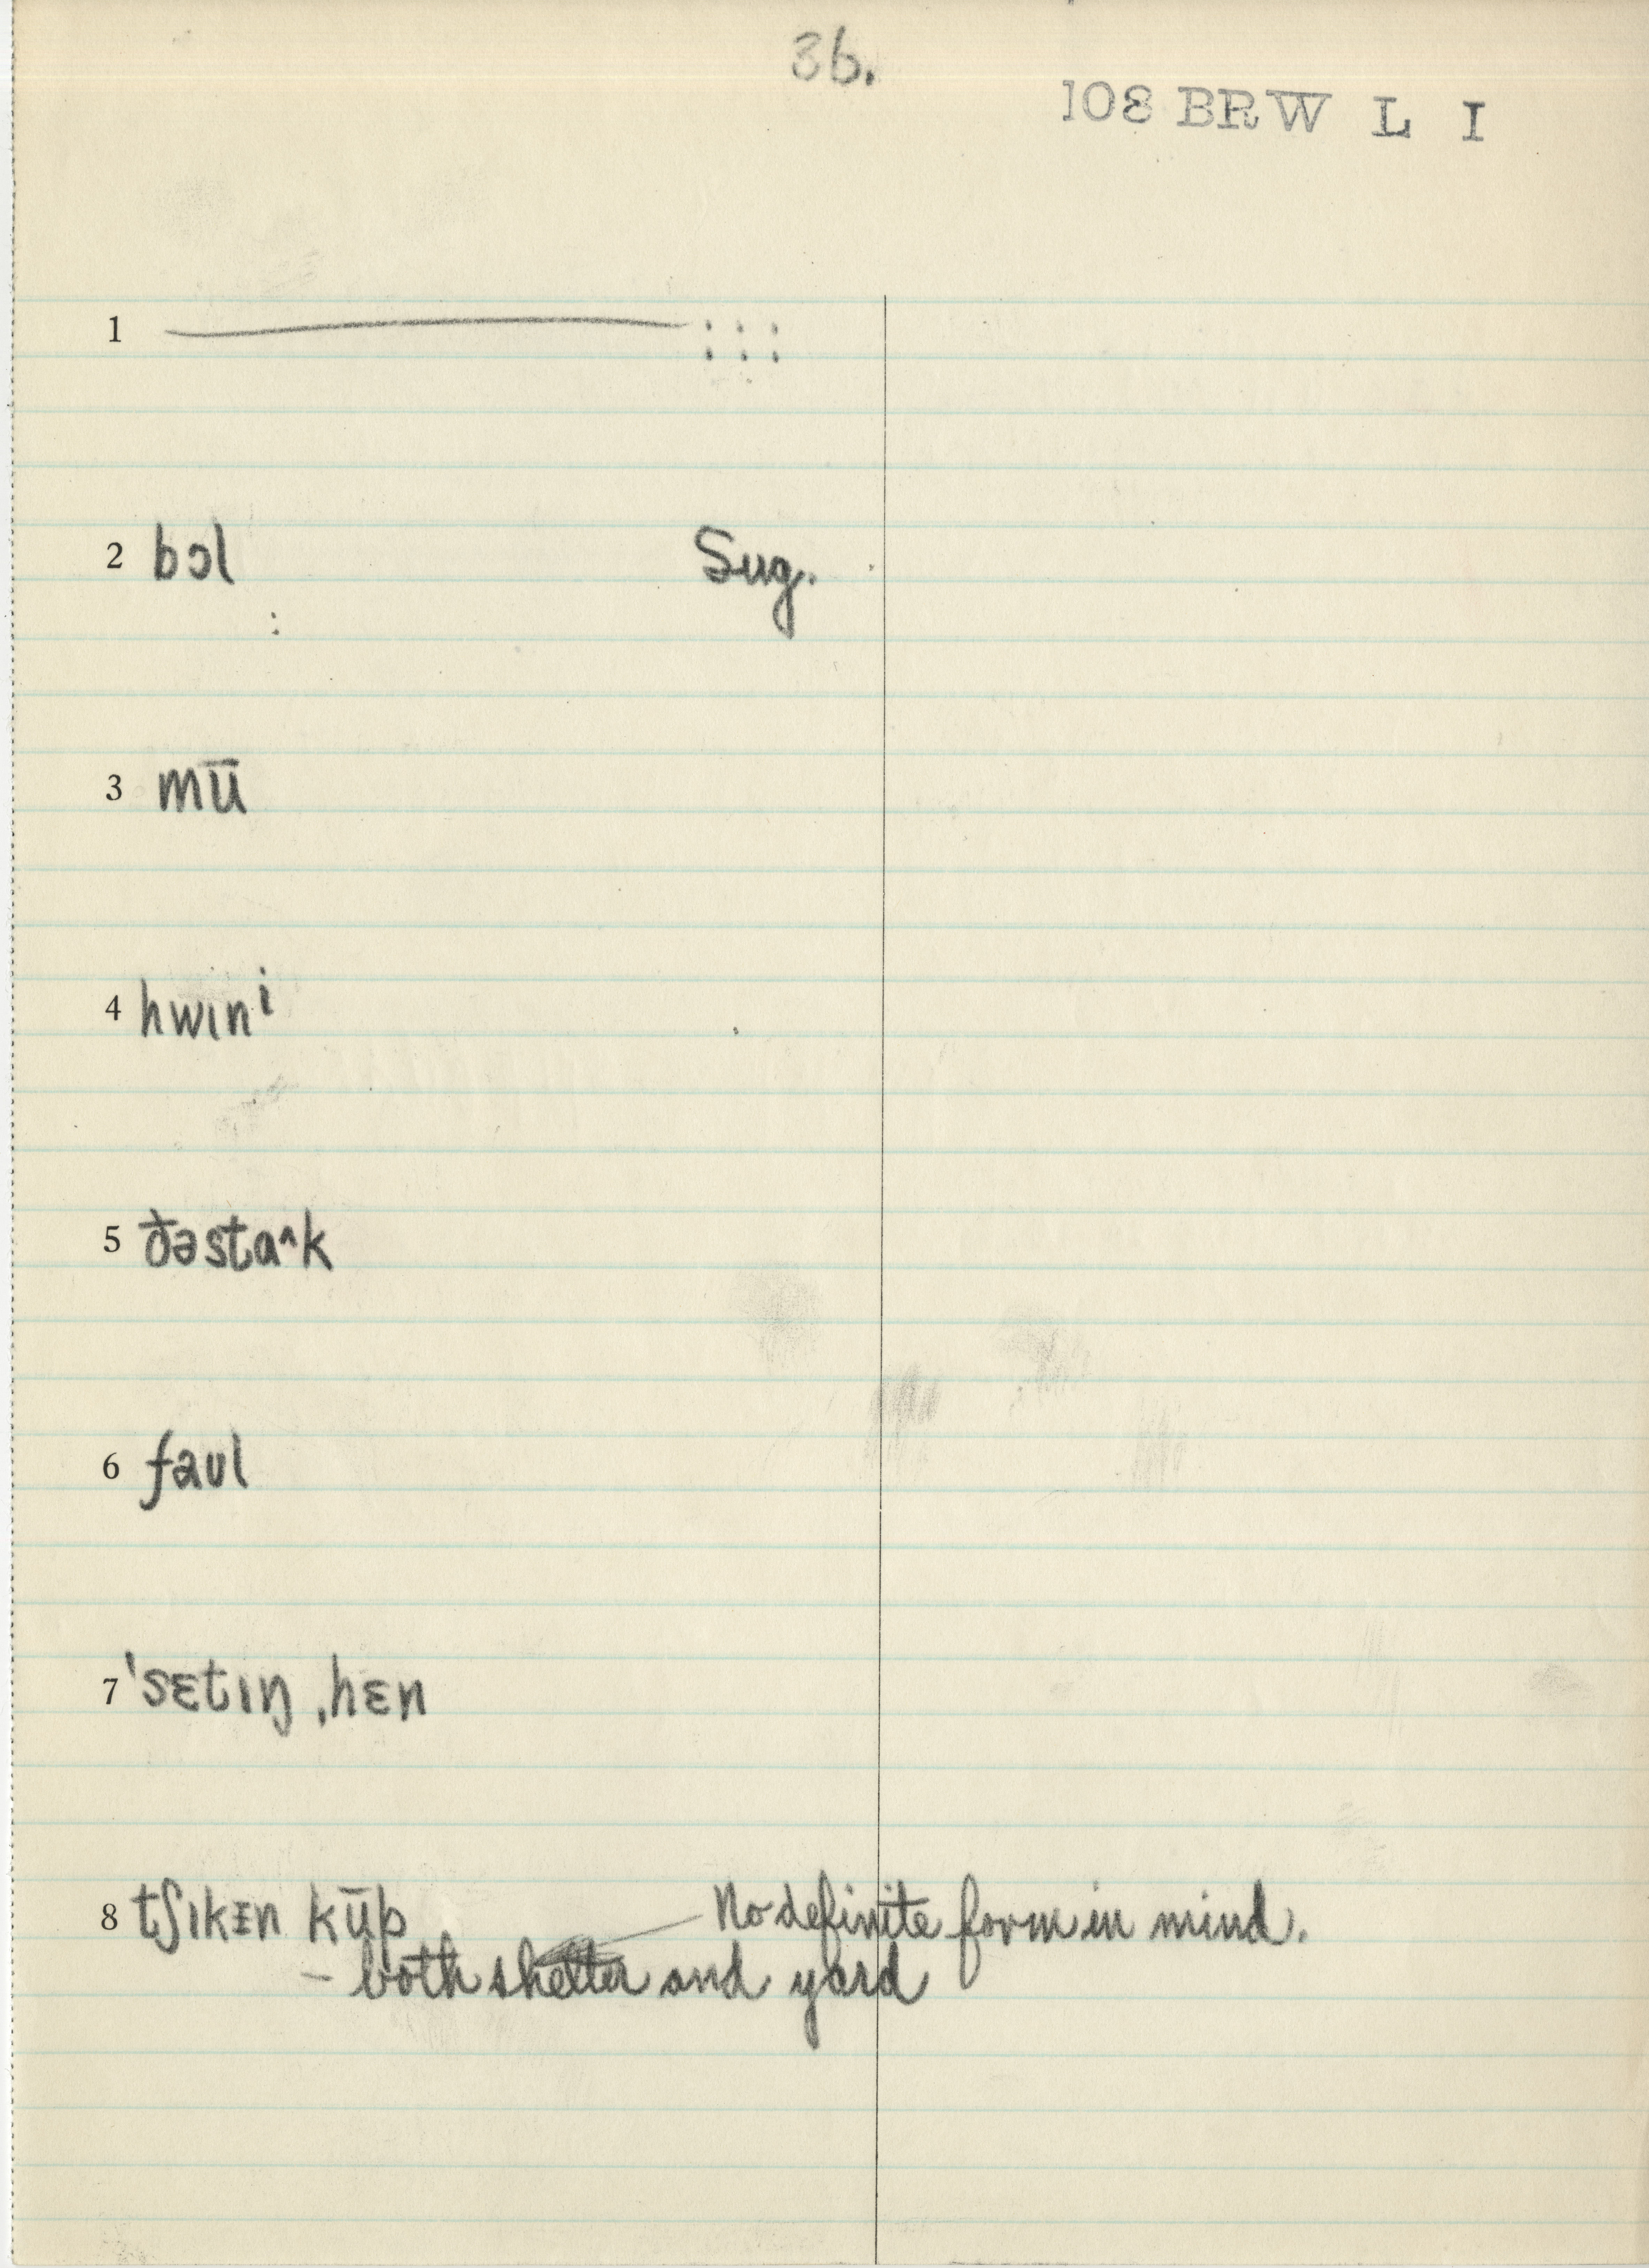 36.
108 BRW L I
1 ——— : : :
2 bɔl Sug.
:
3 mū
4 hwɪnⁱ
5 ðəsta^k
6 faʊl
7 ˈsɛtɪŋ ˌhɛn
8 tʃɪkɪn kūp No definite form in mind.
– both shelter and yard